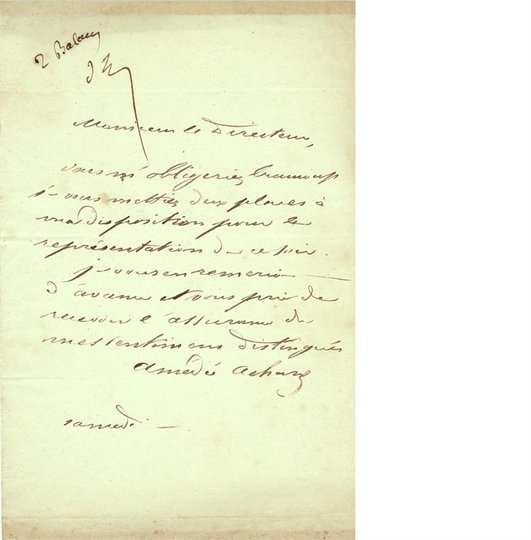 2 Balcon
Monsieur le Directeur,
vous m'obligeriez beaucoup
si vous mettiez deux places à
ma disposition pour la
représentation de ce soir.
je vous en remercie
d'avance et vous prie de
recevoir l'assurance de
mes sentiments distingués
Amédée Achard
samedi —